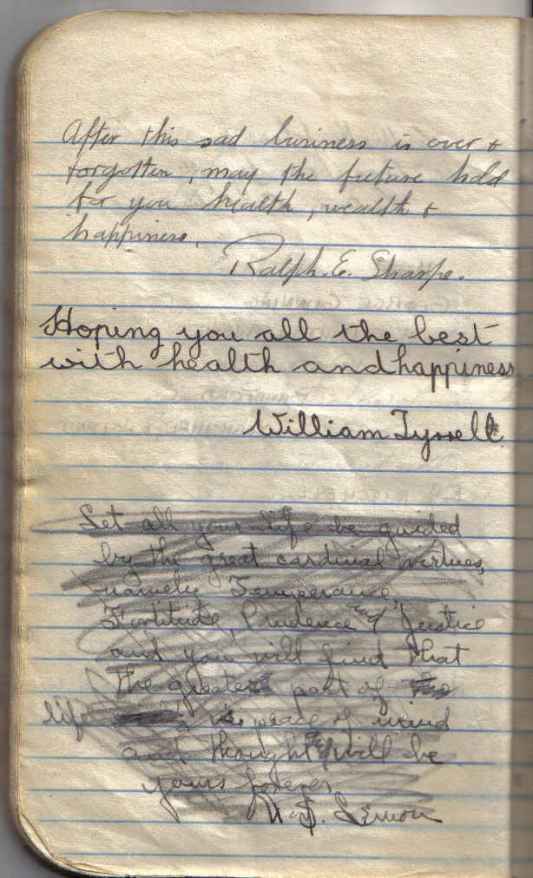 After this sad business is over &
forgotten, may the future hold
for you health, wealth &
happiness.
Ralph. E. Sharpe.
Hoping you all the best
with health and happiness
William Tyrrell.
Let all your life be guided
by the great cardinal virtues,
namely Temperance,
Fortitude, Prudence and Justice
and you will find that
the greatest part of
life peace of mind
and thought will be
yours forever.
Lemon